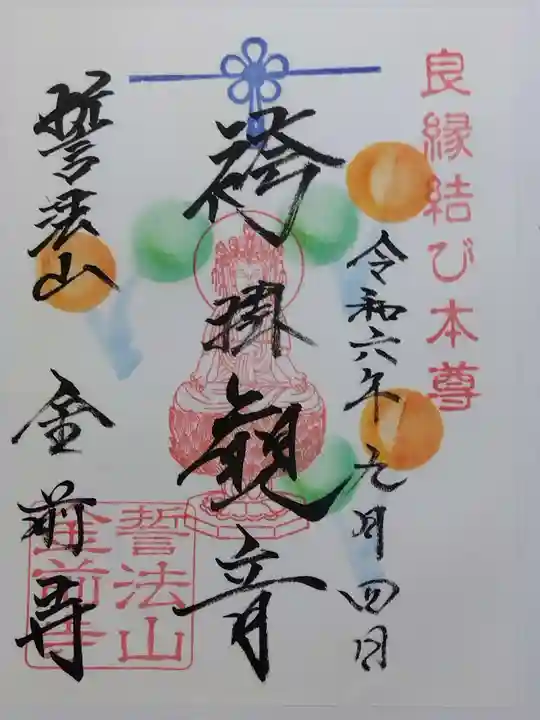 良縁結び本尊
令和六年九月四日
袴掛観音
誓法山
金前寺
誓法山
金前寺